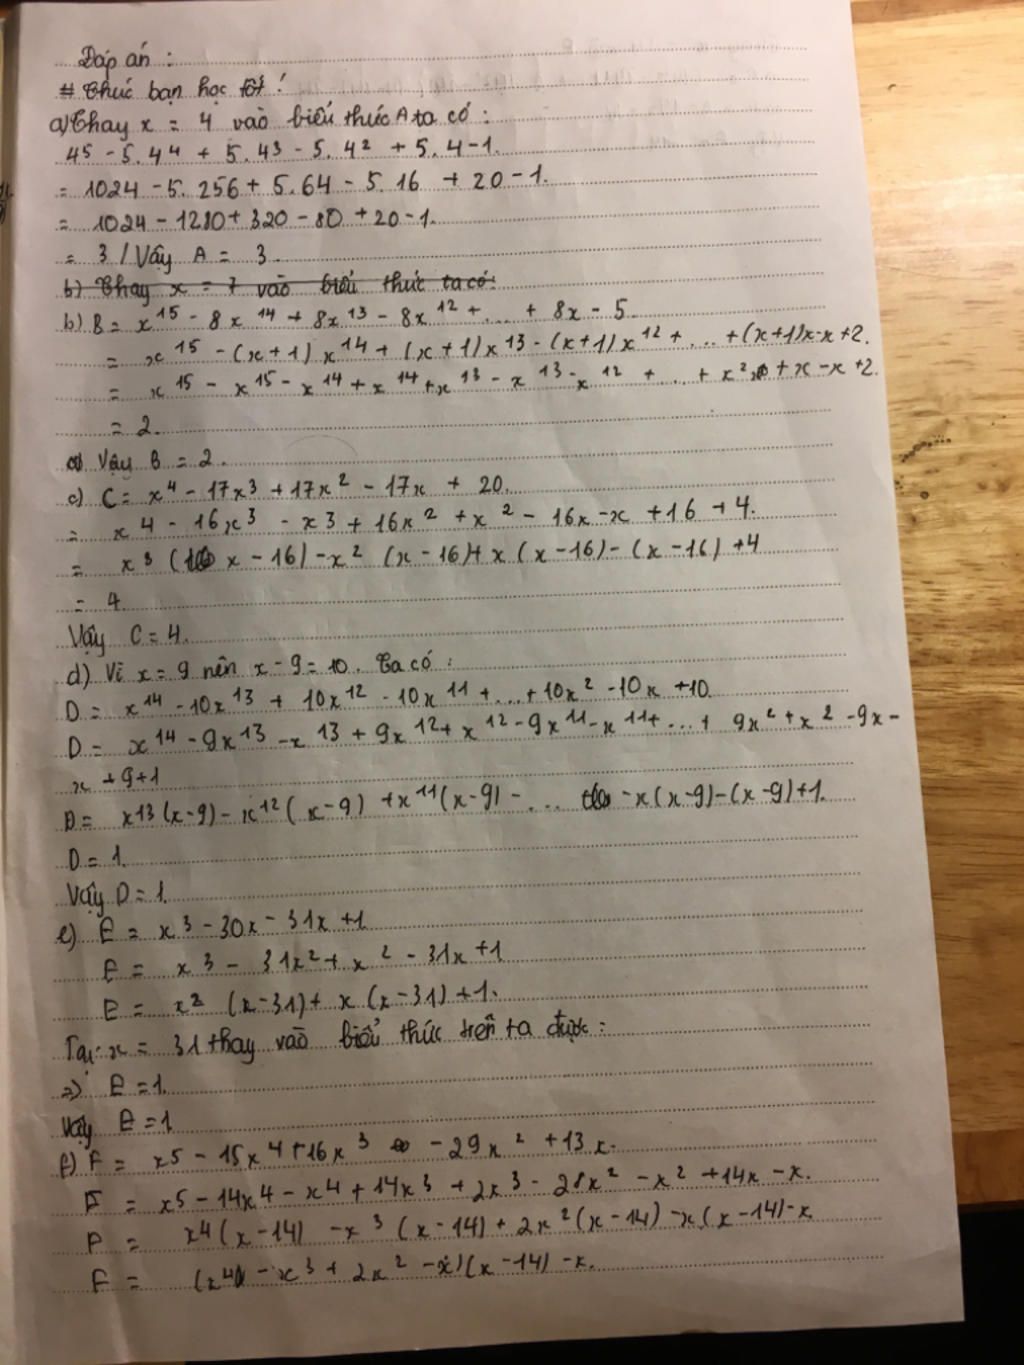 Đáp án :
# Chúc bạn học tốt !
a) Thay x = 4 vào biểu thức A ta có :
4⁵ - 5.4⁴ + 5.4³ - 5.4² + 5.4 - 1.
= 1024 - 5.256 + 5.64 - 5.16 + 20 - 1.
= 1024 - 1280 + 320 - 80 + 20 - 1.
= 3 / Vậy A = 3.
b) Thay x = 7 vào biểu thức ta có:
b) B = x¹⁵ - 8x¹⁴ + 8x¹³ - 8x¹² + ... + 8x - 5.
= x¹⁵ - (x+1)x¹⁴ + (x+1)x¹³ - (x+1)x¹² + ... + (x+1)x - x + 2.
= x¹⁵ - x¹⁵ - x¹⁴ + x¹⁴ + x¹³ - x¹³ - x¹² + ... + x² + x - x + 2.
= 2.
Vậy B = 2.
c) C = x⁴ - 17x³ + 17x² - 17x + 20.
= x⁴ - 16x³ - x³ + 16x² + x² - 16x - x + 16 + 4.
= x³ (x - 16) - x² (x - 16) + x (x - 16) - (x - 16) + 4
= 4.
Vậy C = 4.
d) Vì x = 9 nên x - 9 = 10. Ta có :
D = x¹⁴ - 10x¹³ + 10x¹² - 10x¹¹ + ... + 10x² - 10x + 10.
D = x¹⁴ - 9x¹³ - x¹³ + 9x¹² + x¹² - 9x¹¹ - x¹¹ + ... + 9x² + x² - 9x -
x + 9 + 1
D = x¹³(x-9) - x¹²(x-9) + x¹¹(x-9) - ... - x(x-9) - (x-9) + 1.
D = 1.
Vậy D = 1.
e) E = x³ - 30x - 31x + 1
E = x³ - 31x² + x² - 31x + 1
E = x² (x-31) + x (x-31) + 1.
Tại x = 31 thay vào biểu thức trên ta được :
=> E = 1.
Vậy E = 1
f) F = x⁵ - 15x⁴ + 16x³ - 29x² + 13x.
F = x⁵ - 14x⁴ - x⁴ + 14x³ + 2x³ - 28x² - x² + 14x - x.
F = x⁴(x-14) - x³(x-14) + 2x²(x-14) - x(x-14) - x
F = (x⁴ - x³ + 2x² - x)(x-14) - x.